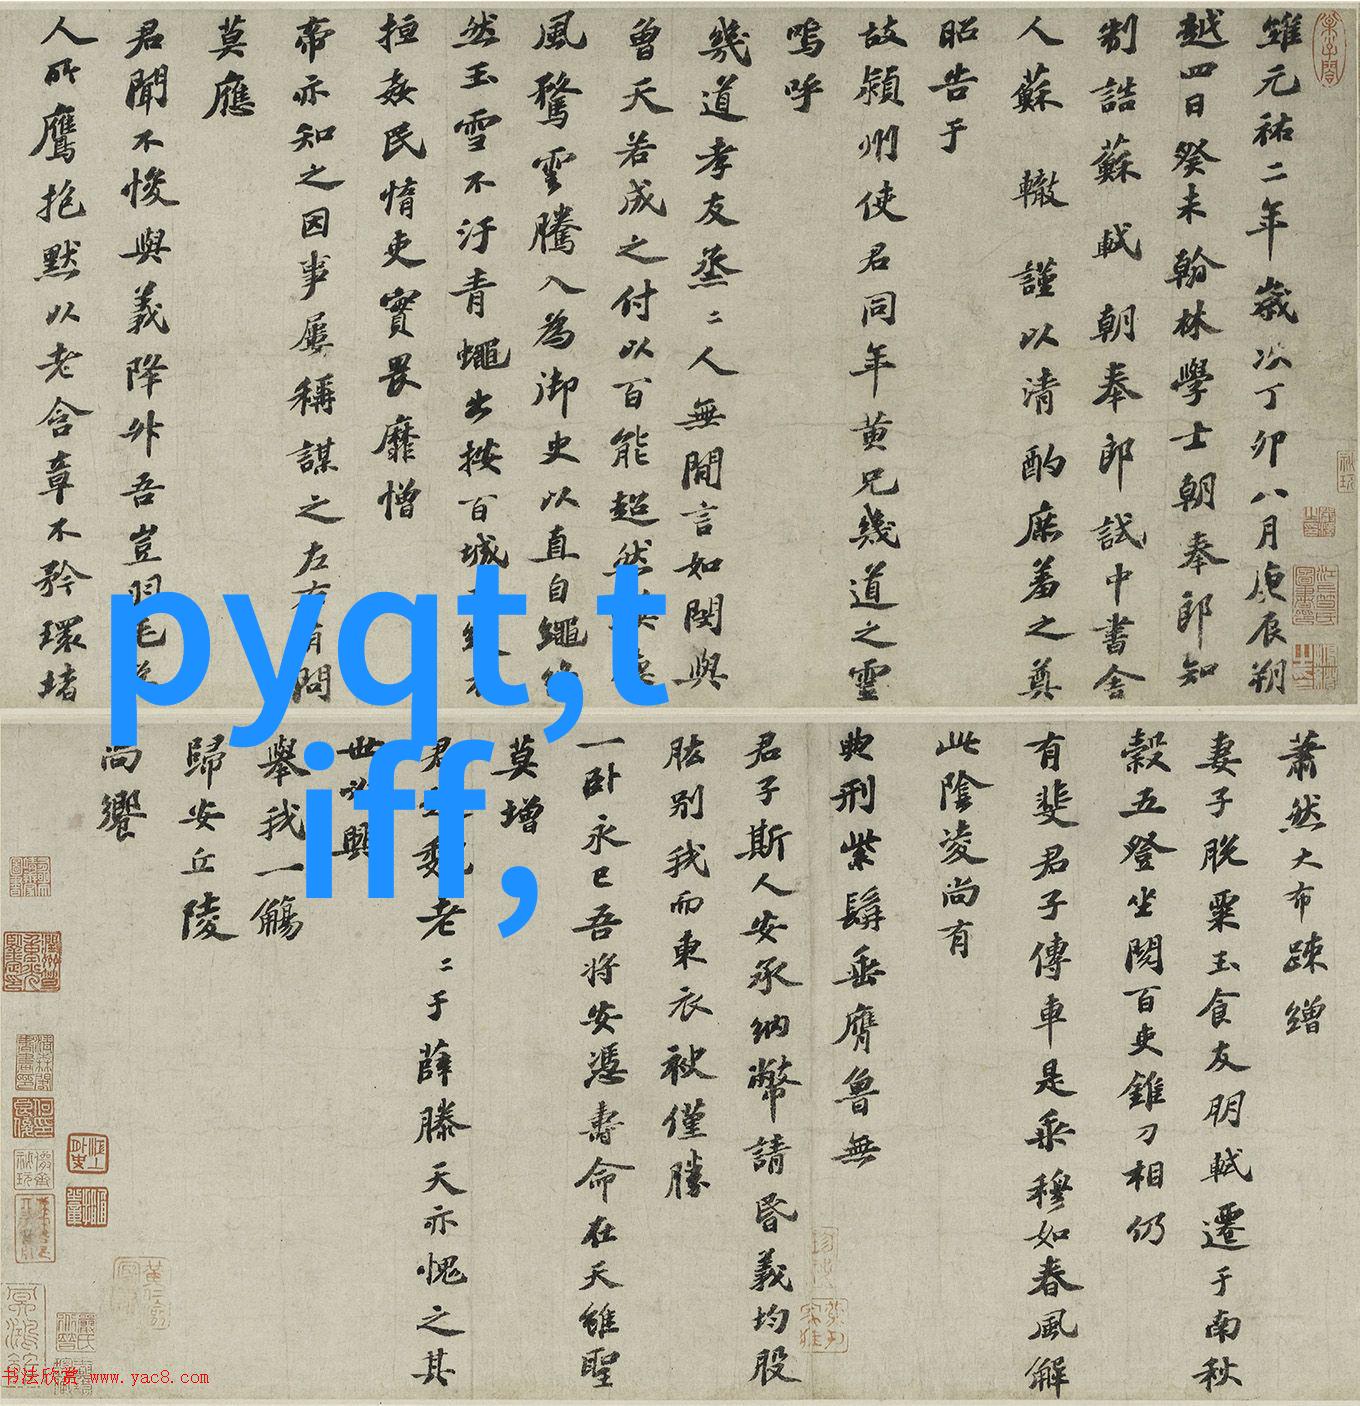 維元祐二年歲次丁卯八月庚辰朔
越四日癸未翰林學士朝奉郎知
制誥蘇軾朝奉郎試中書舍
人蘇轍謹以清酌庶羞之奠
昭告于
故潁州使君同年黃兄幾道之靈
嗚呼
幾道孝友烝二人無間言如閔與
曾天若成之付以百能超然
風鶩雲騰入為御史以直自繩
然玉雪不汙青蠅出按百城
捶姦民惰吏實畏靡憎
帝亦知之因事屢稱謀之左右有問
莫應
君聞不悛與義降升吾豈羽毛
人所鷹抱默以老含章不矜環堵
蕭然大布疎繒
妻子脫粟玉食友朋軾遷于南秋
穀五登坐閱百吏錐刀相仍
有斐君子傳車是乘穆如春風解
此陰凌尚有
典刑紫髯垂膺魯無
君子斯人安承納幣請昏義均股
肱別我而東衣袂僅勝
一臥永已吾將安憑壽命在天雖聖
莫增
君
老二于薛滕天亦愧之其
世
興
舉我一觴
歸安丘陵
尚饗
pyqt,t
iff,
书法欣赏 www.yac8.com